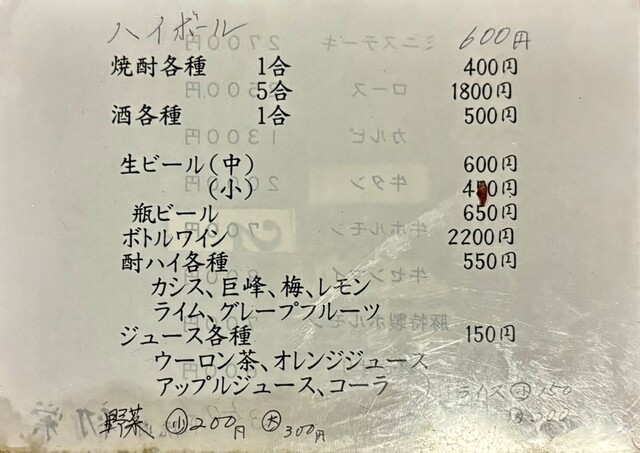 ハイボール 600円
焼酎各種 1合 400円
5合 1800円
酒各種 1合 500円
生ビール(中) 600円
(小) 円
瓶ビール 650円
ボトルワイン 2200円
酎ハイ各種 550円
カシス、巨峰、梅、レモン
ライム、グレープフルーツ
ジュース各種 150円
ウーロン茶、オレンジジュース
アップルジュース、コーラ
ライス 小 150
野菜 小 200円 大 300円